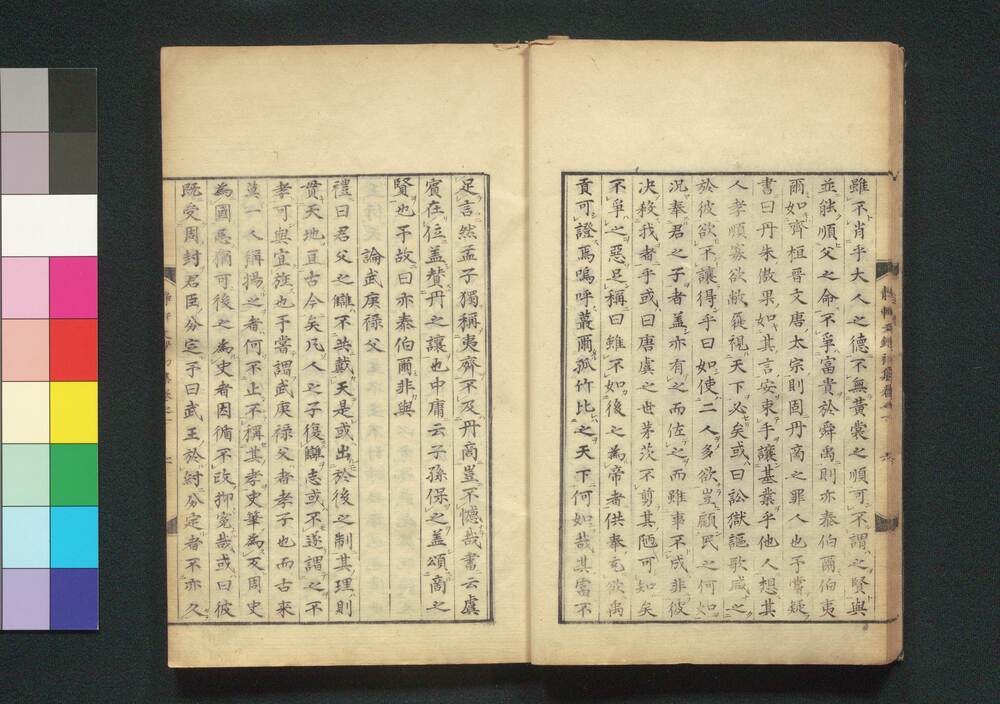 雖不肖乎大人之德不無黃裳之順可不謂之賢與
並能順父之命不爭富貴於舜禹則亦泰伯爾伯夷
爾如齊桓晉文唐太宗則固丹商之罪人也予嘗疑
書曰丹朱傲果如其言安束手讓基業乎他人想其
人孝順寡欲敝蓰視天下必矣或曰訟獄謳歌咸之
於彼欲不讓得乎曰如使二人多欲豈顧民之何如
況奉君之子者蓋亦有之而佐之而雖事不成非彼
決殺我者乎或曰唐虞之世茅茨不剪其陋可知矣
不爭之惡足稱曰雖不如後之為帝者供奉充欲禹
貢可證焉嗚呼蕞爾孤竹比之天下何如哉其富不
足言然孟子獨稱夷齊不及丹商豈不憾哉書云虞
賓在位蓋贊丹之讓也中庸云子孫保之蓋頌商之
賢也予故曰亦泰伯爾非與
論武庚祿父
禮曰君父之讎不共戴天是或出於後之制其理則
貫天地亘古今矣凡人之子復讎志或不遂謂之不
孝可與宜旌也予嘗謂武庚祿父者孝子也而古来
莫一人稱揚之者何不止不稱其孝史筆為反周史
為國惡猶可後之為史者因循不改抑冤哉或曰彼
既受周封君臣分定予曰武王於紂分定者不亦久